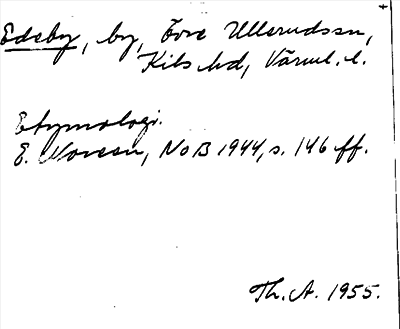 Edeby, by, Övre Ullerudssn,
Kils hd, Värml. l.
Etymologi.
E. Noreen, NoB 1944, s. 146 ff.
Th. A. 1955.